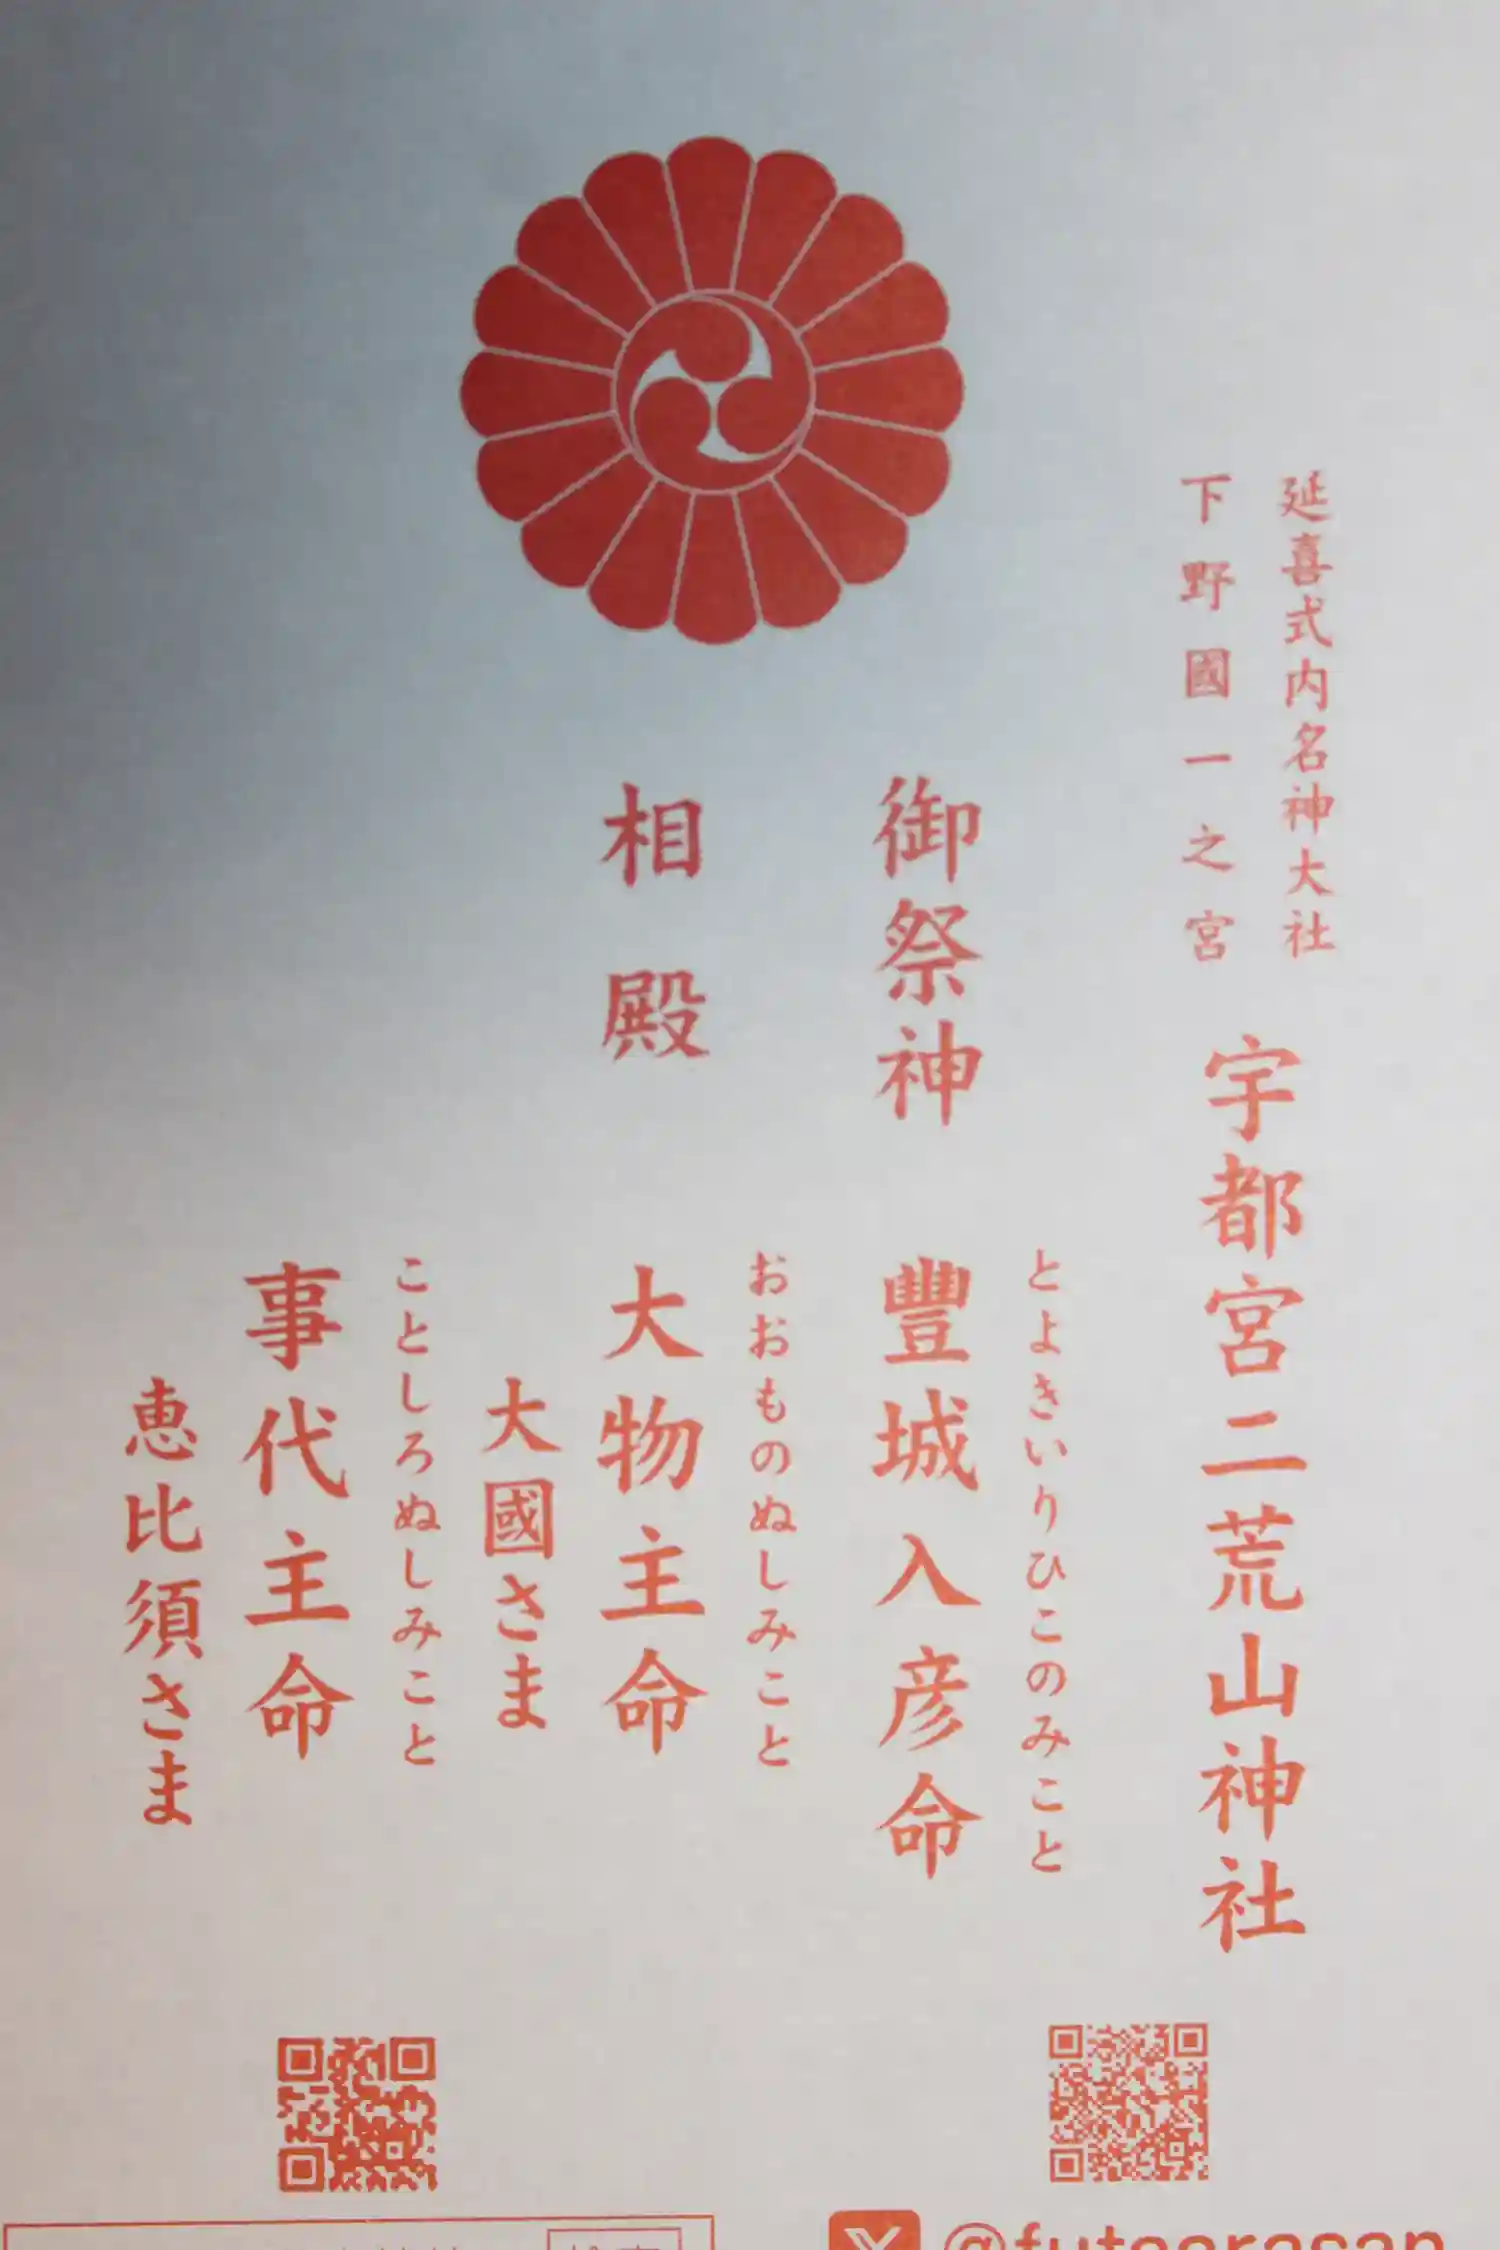 延喜式内名神大社
下野國一之宮
宇都宮二荒山神社
とよきいりひこのみこと
御祭神 豐城入彦命
おおものぬしみこと
相殿 大物主命
大國さま
ことしろぬしみこと
事代主命
恵比須さま
@futaarasan